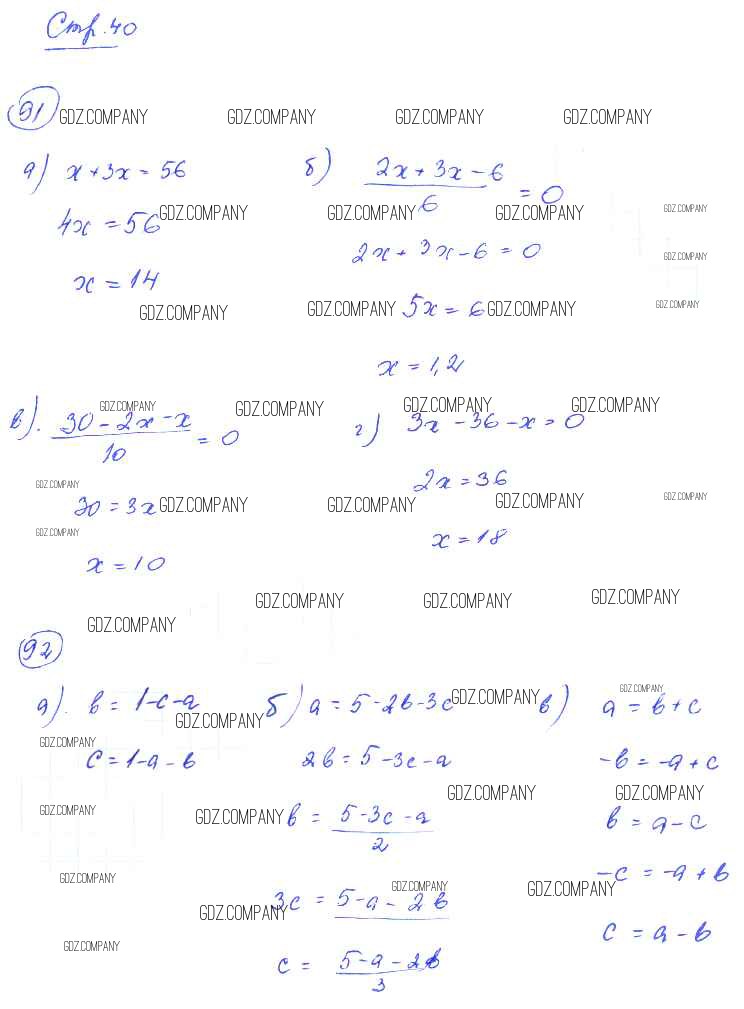 Стр. 40
91
GDZ.COMPANY GDZ.COMPANY GDZ.COMPANY GDZ.COMPANY
а) x + 3x = 56
4x = 56
x = 14
б) 2x + 3x - 6 / 6 = 0
2x + 3x - 6 = 0
5x = 6
x = 1,2
GDZ.COMPANY GDZ.COMPANY GDZ.COMPANY GDZ.COMPANY
GDZ.COMPANY
GDZ.COMPANY GDZ.COMPANY GDZ.COMPANY GDZ.COMPANY
GDZ.COMPANY GDZ.COMPANY GDZ.COMPANY GDZ.COMPANY
в). 30 - 2x - x / 10 = 0
30 = 3x
x = 10
г) 3x - 36 - x = 0
2x = 36
x = 18
GDZ.COMPANY
GDZ.COMPANY GDZ.COMPANY GDZ.COMPANY GDZ.COMPANY
GDZ.COMPANY
GDZ.COMPANY GDZ.COMPANY GDZ.COMPANY GDZ.COMPANY
92
а). b = 1 - c - a
c = 1 - a - b
б) a = 5 - 2b - 3c
2b = 5 - 3c - a
b = 5 - 3c - a / 2
3c = 5 - a - 2b
c = 5 - a - 2b / 3
в) a = b + c
-b = -a + c
b = a - c
-c = -a + b
c = a - b
GDZ.COMPANY GDZ.COMPANY GDZ.COMPANY
GDZ.COMPANY
GDZ.COMPANY GDZ.COMPANY
GDZ.COMPANY GDZ.COMPANY
GDZ.COMPANY GDZ.COMPANY GDZ.COMPANY
GDZ.COMPANY
GDZ.COMPANY